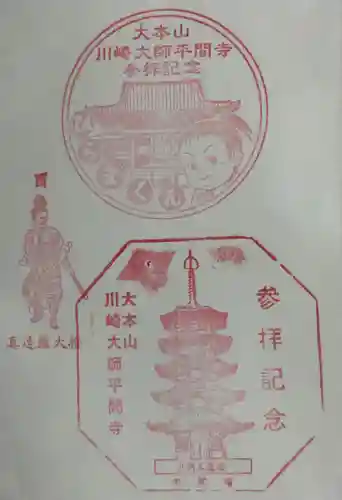 大本山
川崎大師平間寺
参拝記念
ひらまくん
酉
参拝記念
大本山
川崎大師平間寺